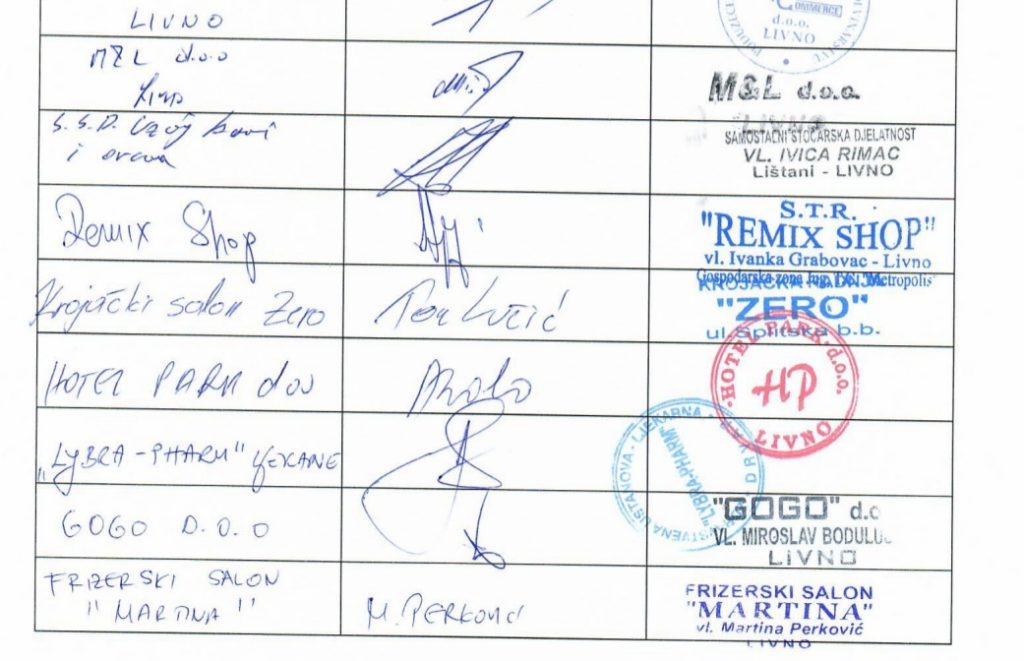 LIVNO
COMMERCE
d.o.o.
LIVNO
M&L d.o.o
M&L d.o.o.
LIVNO
S.S.D. Uzgoj
i ovaca
SAMOSTALNI STOČARSKA DJELATNOST
VL. IVICA RIMAC
Lištani - LIVNO
Remix Shop
S.T.R.
"REMIX SHOP"
vl. Ivanka Grabovac - Livno
Gospodarska zona Ing. "Metropolis"
Krojački salon Zero
KROJAČKA RADNJA
"ZERO"
ul Splitska b.b.
HOTEL PARK doo
HOTEL PARK d.o.o.
HP
LIVNO
"LYBRA-PHARM"
USTANOVA - LJEKARNA
"LYBRA-PHARM"
GOGO D.O.O
"GOGO" d.o
VL. MIROSLAV BODULU
LIVNO
FRIZERSKI SALON
"MARTINA"
M. PERKOVIĆ
FRIZERSKI SALON
"MARTINA"
vl. Martina Perković
LIVNO